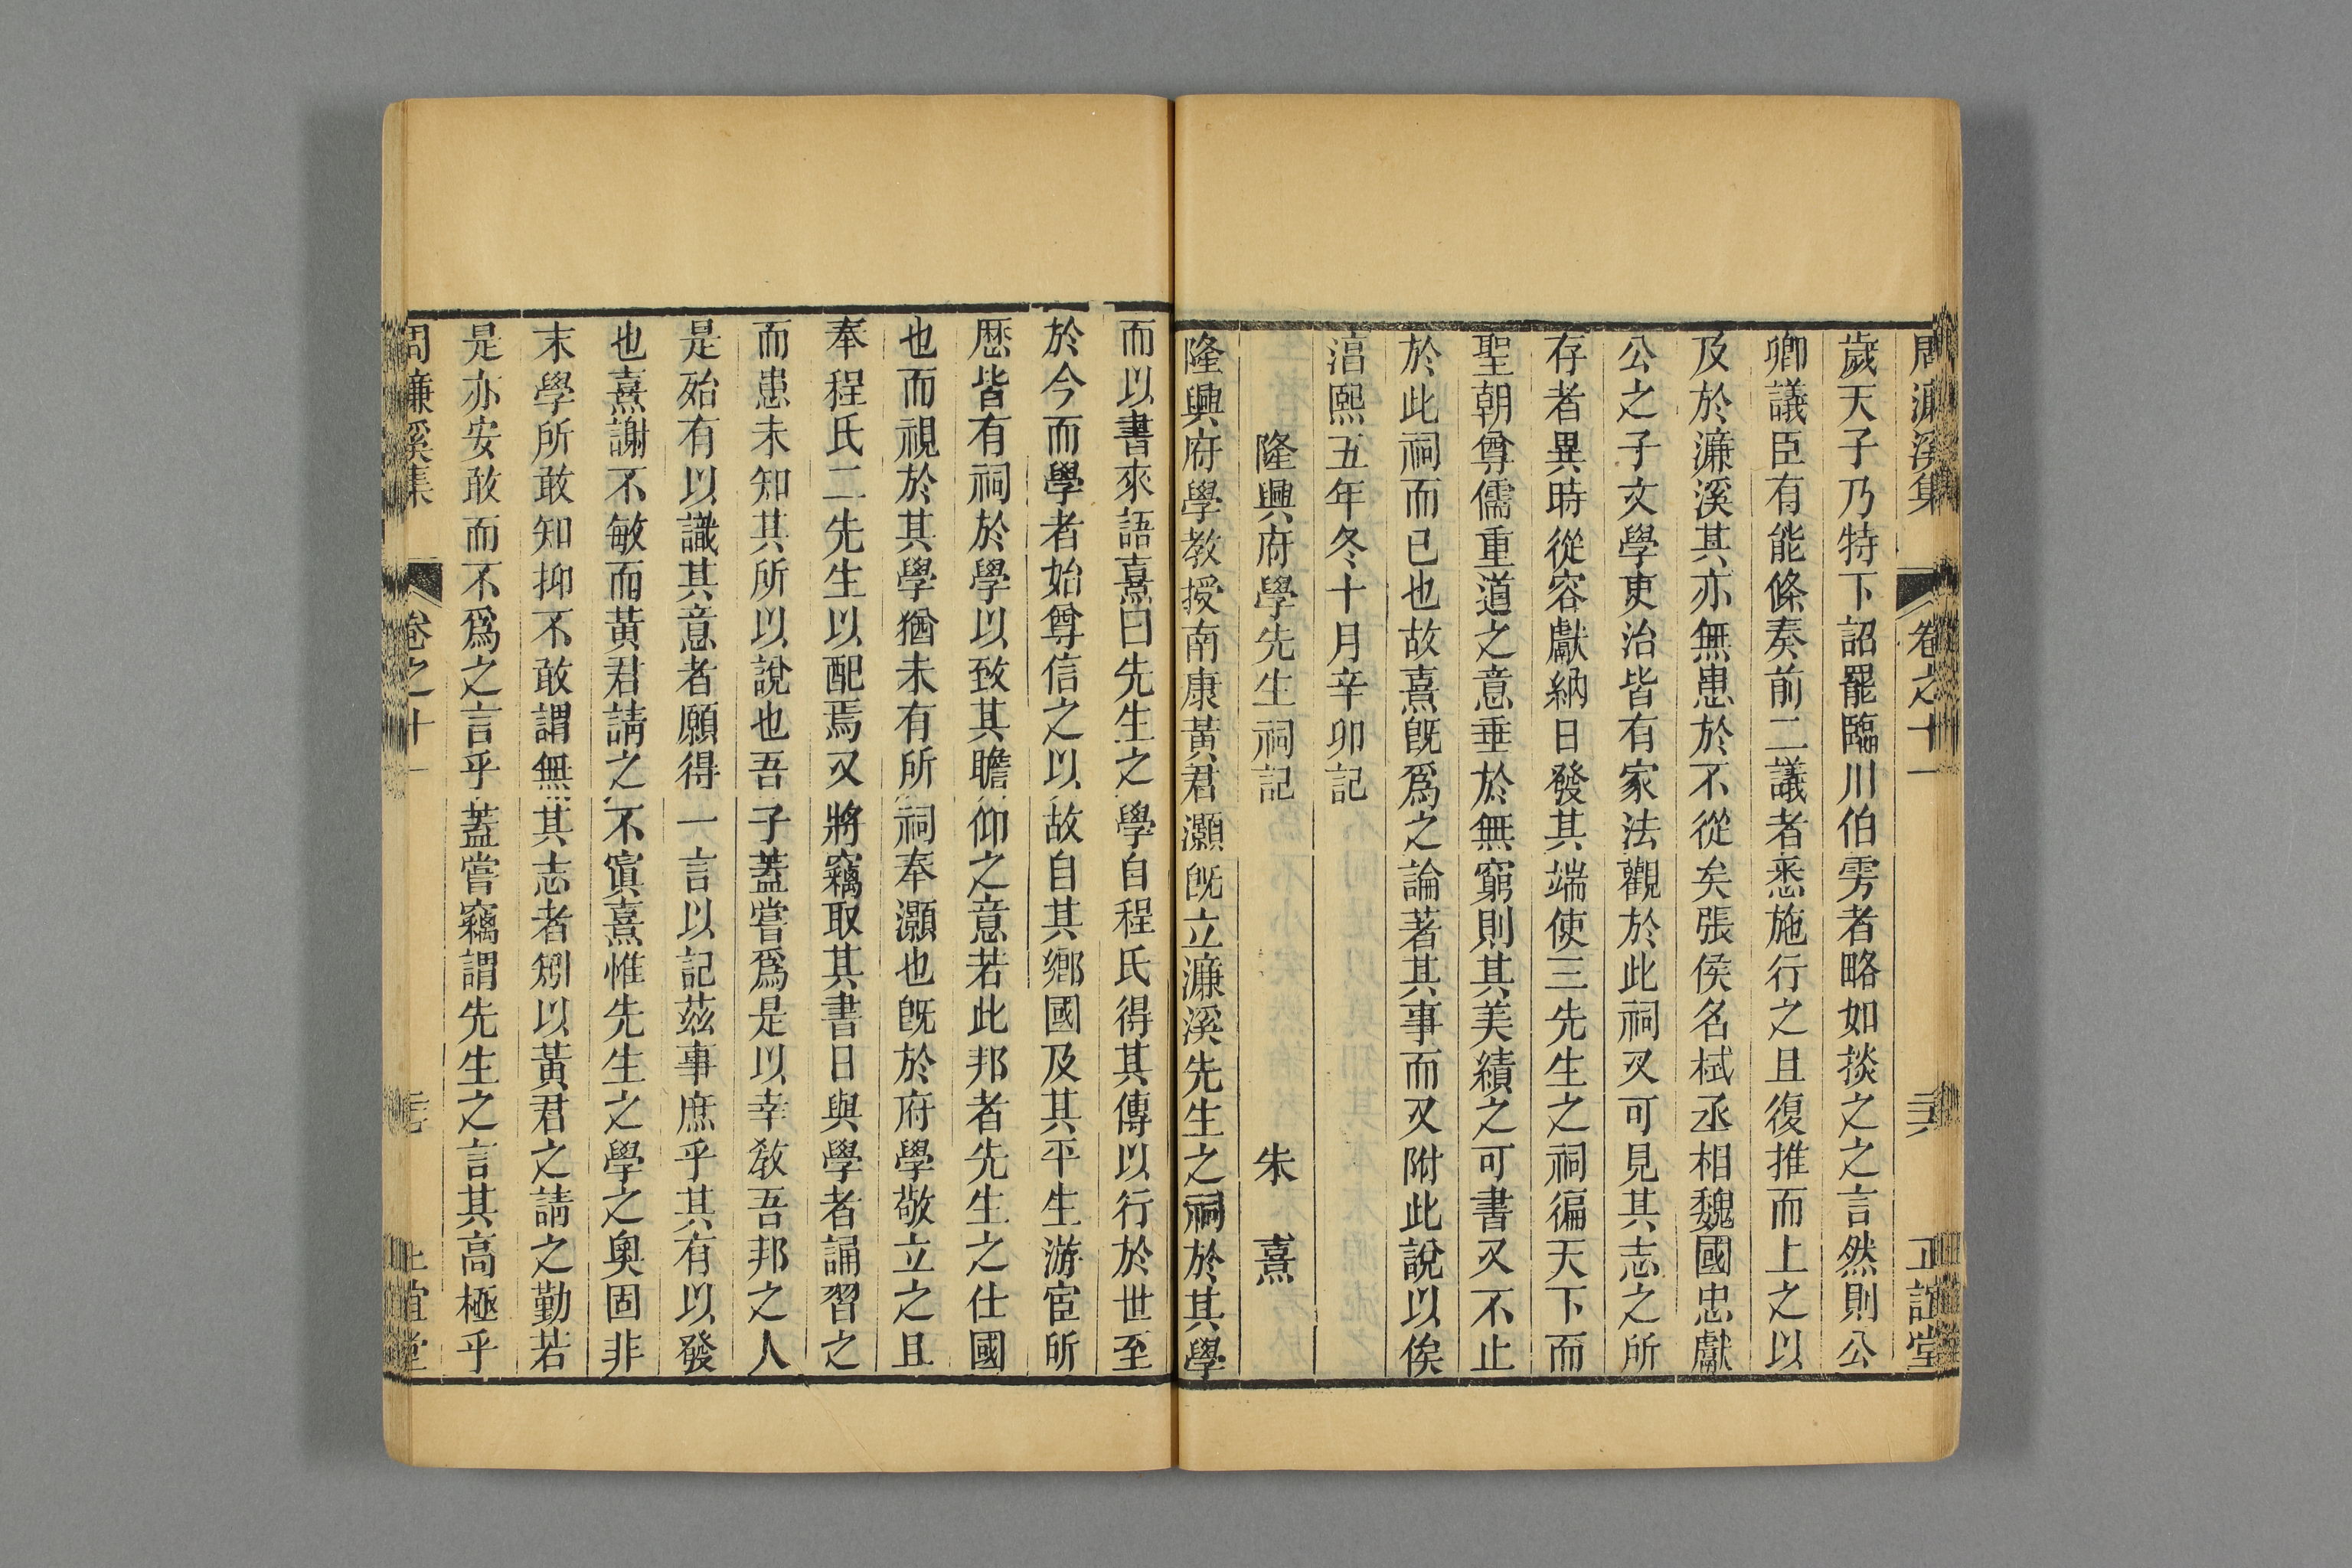 周濂溪集 卷之十一 二十六 正誼堂
歲天子乃特下詔罷臨川伯雱者略如掞之之言然則公
卿議臣有能條奏前二議者悉施行之且復推而上之以
及於濂溪其亦無患於不從矣張侯名栻丞相魏國忠獻
公之子文學吏治皆有家法觀於此祠又可見其志之所
存者異時從容獻納日發其端使三先生之祠徧天下而
聖朝尊儒重道之意垂於無窮則其美績之可書又不止
於此祠而已也故熹旣爲之論著其事而又附此說以俟
湻熙五年冬十月辛卯記
隆興府學先生祠記 朱熹
隆興府學教授南康黃君灝旣立濂溪先生之祠於其學
而以書來語熹曰先生之學自程氏得其傳以行於世至
於今而學者始尊信之以故自其鄉國及其平生游宦所
歷皆有祠於學以致其瞻仰之意若此邦者先生之仕國
也而視於其學猶未有所祠奉灝也旣於府學敬立之且
奉程氏二先生以配焉又將竊取其書日與學者誦習之
而患未知其所以說也吾子蓋嘗爲是以幸敎吾邦之人
是殆有以識其意者願得一言以記茲事庶乎其有以發
也熹謝不敏而黃君請之不寘熹惟先生之學之奧固非
末學所敢知抑不敢謂無其志者矧以黃君之請之勤若
是亦安敢而不爲之言乎蓋嘗竊謂先生之言其高極乎
周濂溪集 卷之十一 二十七 正誼堂